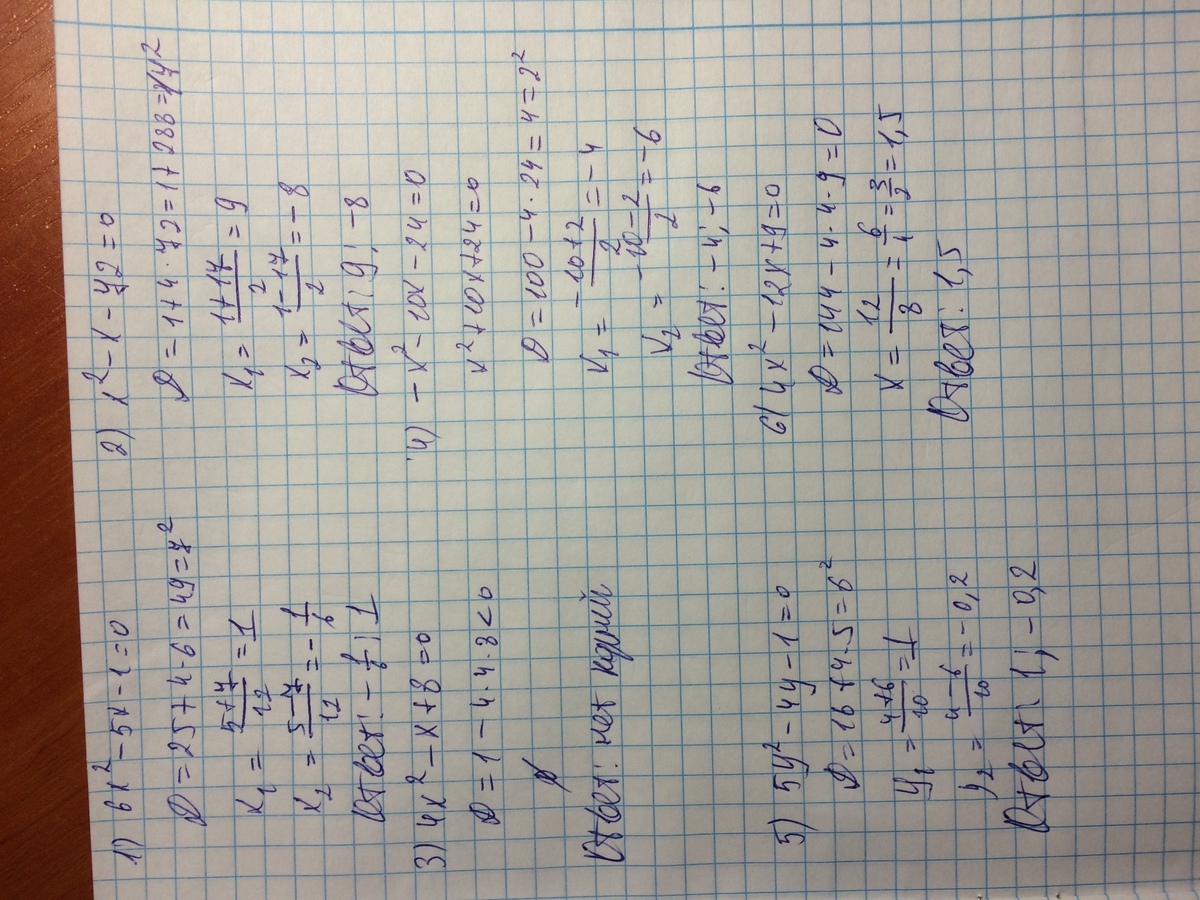 1) 6x² - 5x - 1 = 0
D = 25 + 4·6 = 49 = 7²
x₁ = (5+7)/12 = 1
x₂ = (5-7)/12 = -1/6
Ответ: -1/6; 1
2) x² - x - 72 = 0
D = 1 + 4·72 = 1 + 288 = 17²
x₁ = (1+17)/2 = 9
x₂ = (1-17)/2 = -8
Ответ: 9; -8
3) 4x² - x + 8 = 0
D = 1 - 4·4·8 < 0
Ответ: нет корней
4) -x² - 10x - 24 = 0
x² + 10x + 24 = 0
D = 100 - 4·24 = 4 = 2²
x₁ = (-10+2)/2 = -4
x₂ = (-10-2)/2 = -6
Ответ: -4; -6
5) 5y² - 4y - 1 = 0
D = 16 + 4·5 = 6²
y₁ = (4+6)/10 = 1
y₂ = (4-6)/10 = -0,2
Ответ: 1; -0,2
6) 4x² - 12x + 9 = 0
D = 144 - 4·4·9 = 0
x = 12/8 = 6/4 = 3/2 = 1,5
Ответ: 1,5